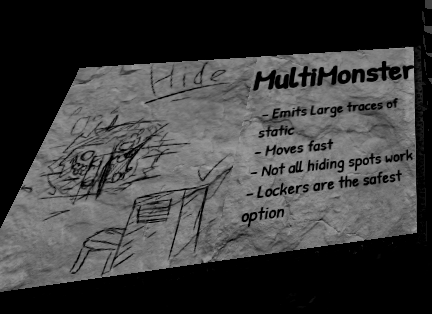 Hide
MultiMonster
- Emits Large traces of
static
- Moves fast
- Not all hiding spots work
- Lockers are the safest
option